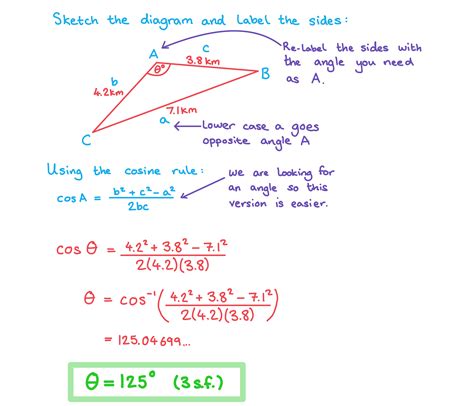 Sketch the diagram and label the sides:
A
c
3.8 km
θ°
B
b
4.2 km
7.1 km
a
C
Re-label the sides with
the angle you need
as A.
Lower case a goes
opposite angle A
Using the cosine rule:
cos A = b² + c² - a² / 2bc
we are looking for
an angle so this
version is easier.
cos θ = 4.2² + 3.8² - 7.1² / 2(4.2)(3.8)
θ = cos⁻¹ ( 4.2² + 3.8² - 7.1² / 2(4.2)(3.8) )
= 125.04699...
θ = 125° (3 s.f.)